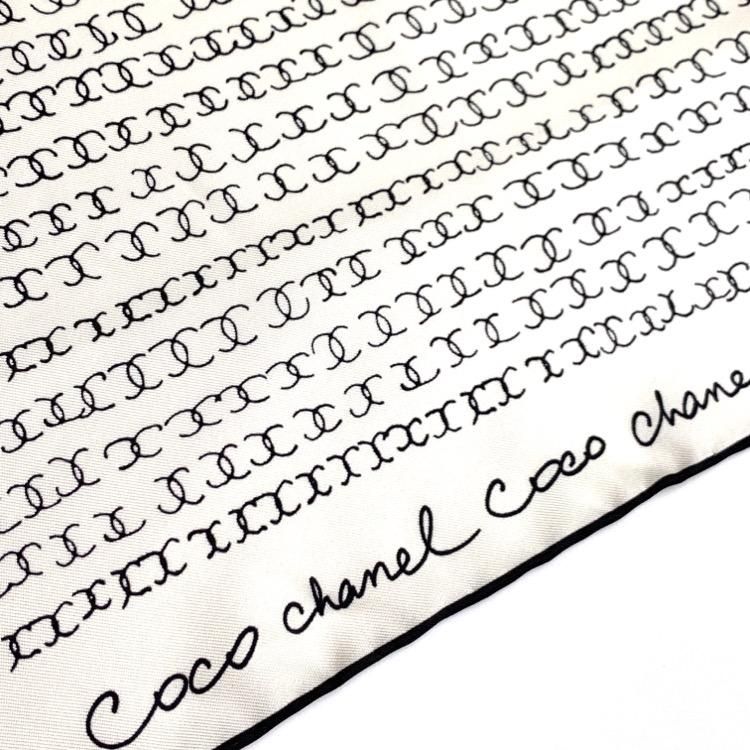 Coco chanel Coco chane